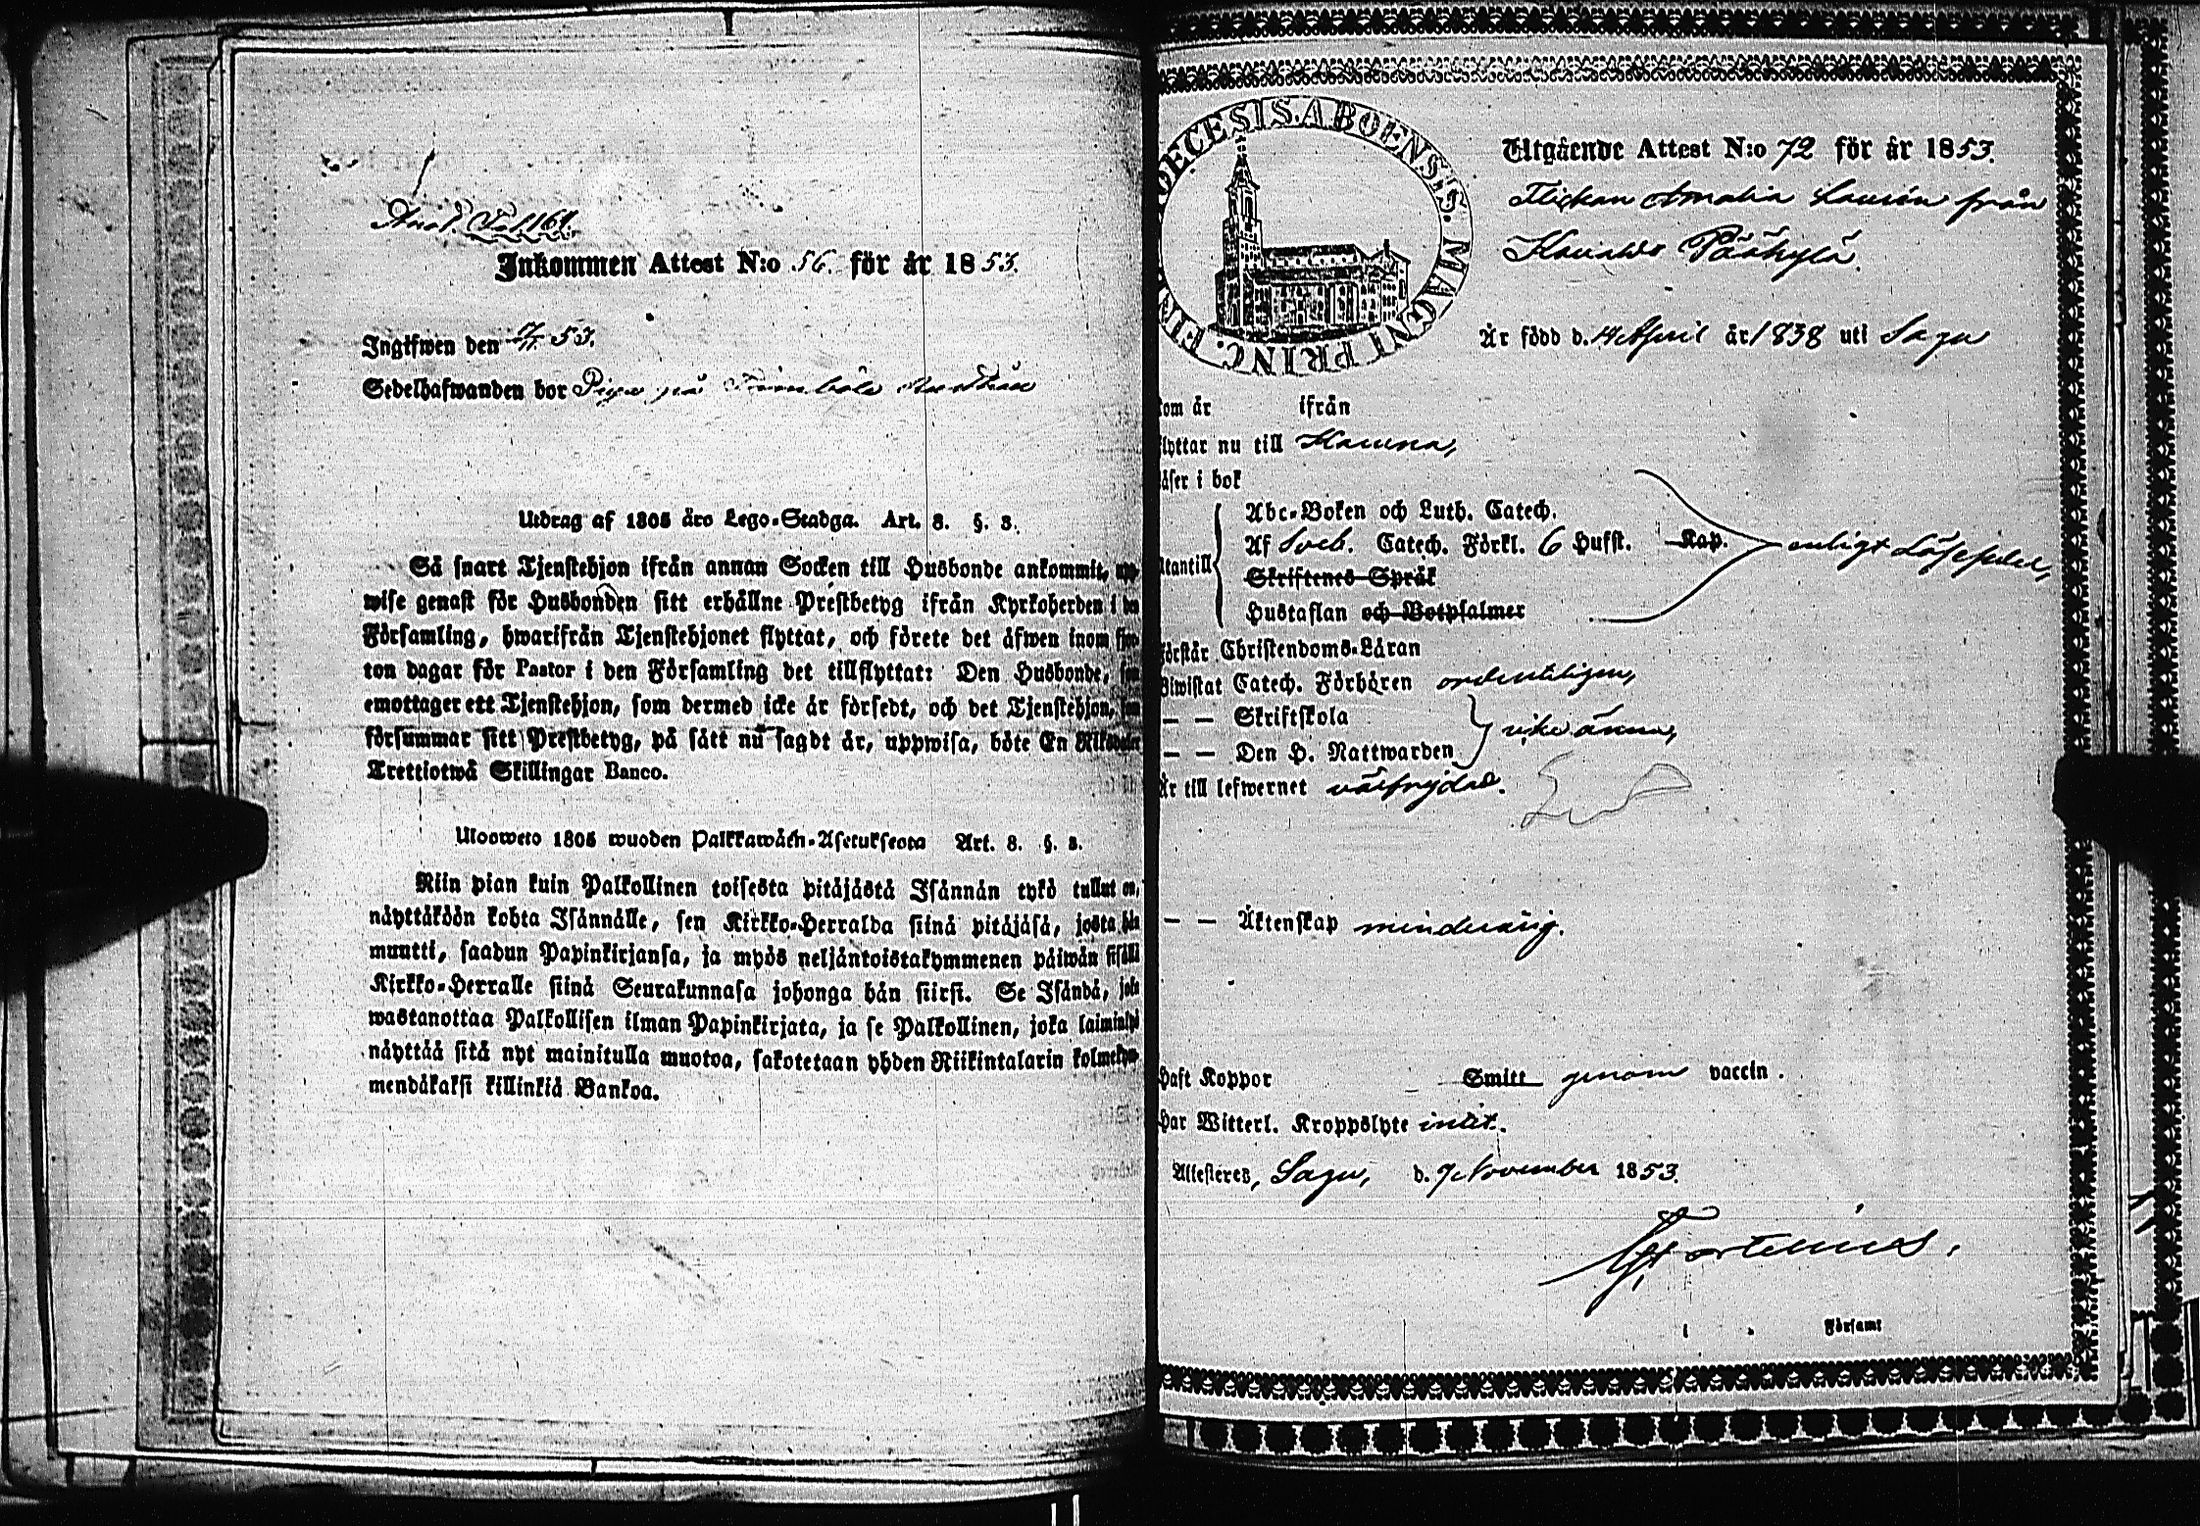 Fol 161.
Inkommen Attest N:o 56. för år 1853.
Ingifwen den 17/11 53.
Sedelhafwanden bor Piga på
Utdrag af 1805 års Lego-Stadga. Art. 8. §. 3.
Så snart Tjenstehjon ifrån annan Socken till Husbonde ankommit, upp
wise genast för Husbonden sitt erhållne Prestbetyg ifrån Kyrkoherden i den
Församling, hwarifrån Tjenstehjonet flyttat, och förete det äfwen inom fjor-
ton dagar för Pastor i den Församling det tillflyttat: Den Husbonde, som
emottager ett Tjenstehjon, som dermed icke är försedt, och det Tjenstehjon, som
försummar sitt Prestbetyg, på sätt nu sagdt är, uppwisa, böte En Riksdaler
Trettiotwå Skillingar Banco.
Ulosweto 1805 wuoden Palkkawäen-Asetuksesta Art. 8. §. 3.
Niin pian kuin Palkollinen toisesta pitäjästä Isännän tykö tullut on,
näyttäköön kohta Isännälle, sen Kirkko-Herralda siinä pitäjäsä, josta hän
muutti, saadun Papinkirjansa, ja myös neljäntoistakymmenen päiwän sisällä
Kirkko-Herralle siinä Seurakunnasa johonga hän siirsi. Se Isändä, joka
wastanottaa Palkollisen ilman Papinkirjata, ja se Palkollinen, joka laiminlyö
näyttää sitä nyt mainitulla muotoa, sakotetaan yhden Riikintalarin kolmekym-
mendäkaksi killinkiä Bankoa.
DIOECESIS. ABOENSIS. MAGNI PRINC. FIN
Utgående Attest N:o 72 för år 1853.
Flickan Amalia Laurén från
Päökylä.
Är född d. 14 April år 1838 uti Sagu
som är ifrån
flyttar nu till Karuna,
läser i bok
Abc-Boken och Luth. Catech.
Af Sveb. Catech. Förkl. 6 Hufst. Kap. enligt Läsesedel,
Utantill
Skriftenes Språk
Hustaflan och Botpsalmer
Förstår Christendoms-Läran
Biwistat Catech. Förhören ordentligen,
— — Skriftskola
icke ännu,
— — Den H. Nattwarden
Är till lefwernet välfrejdad.
— — Äktenskap minderårig.
Haft Koppor Smitt genom vaccin.
Har Witterl. Kroppslyte intet.
Attesteres, Sagu, d. 7 November 1853.
Hortelius.
i Förfamt